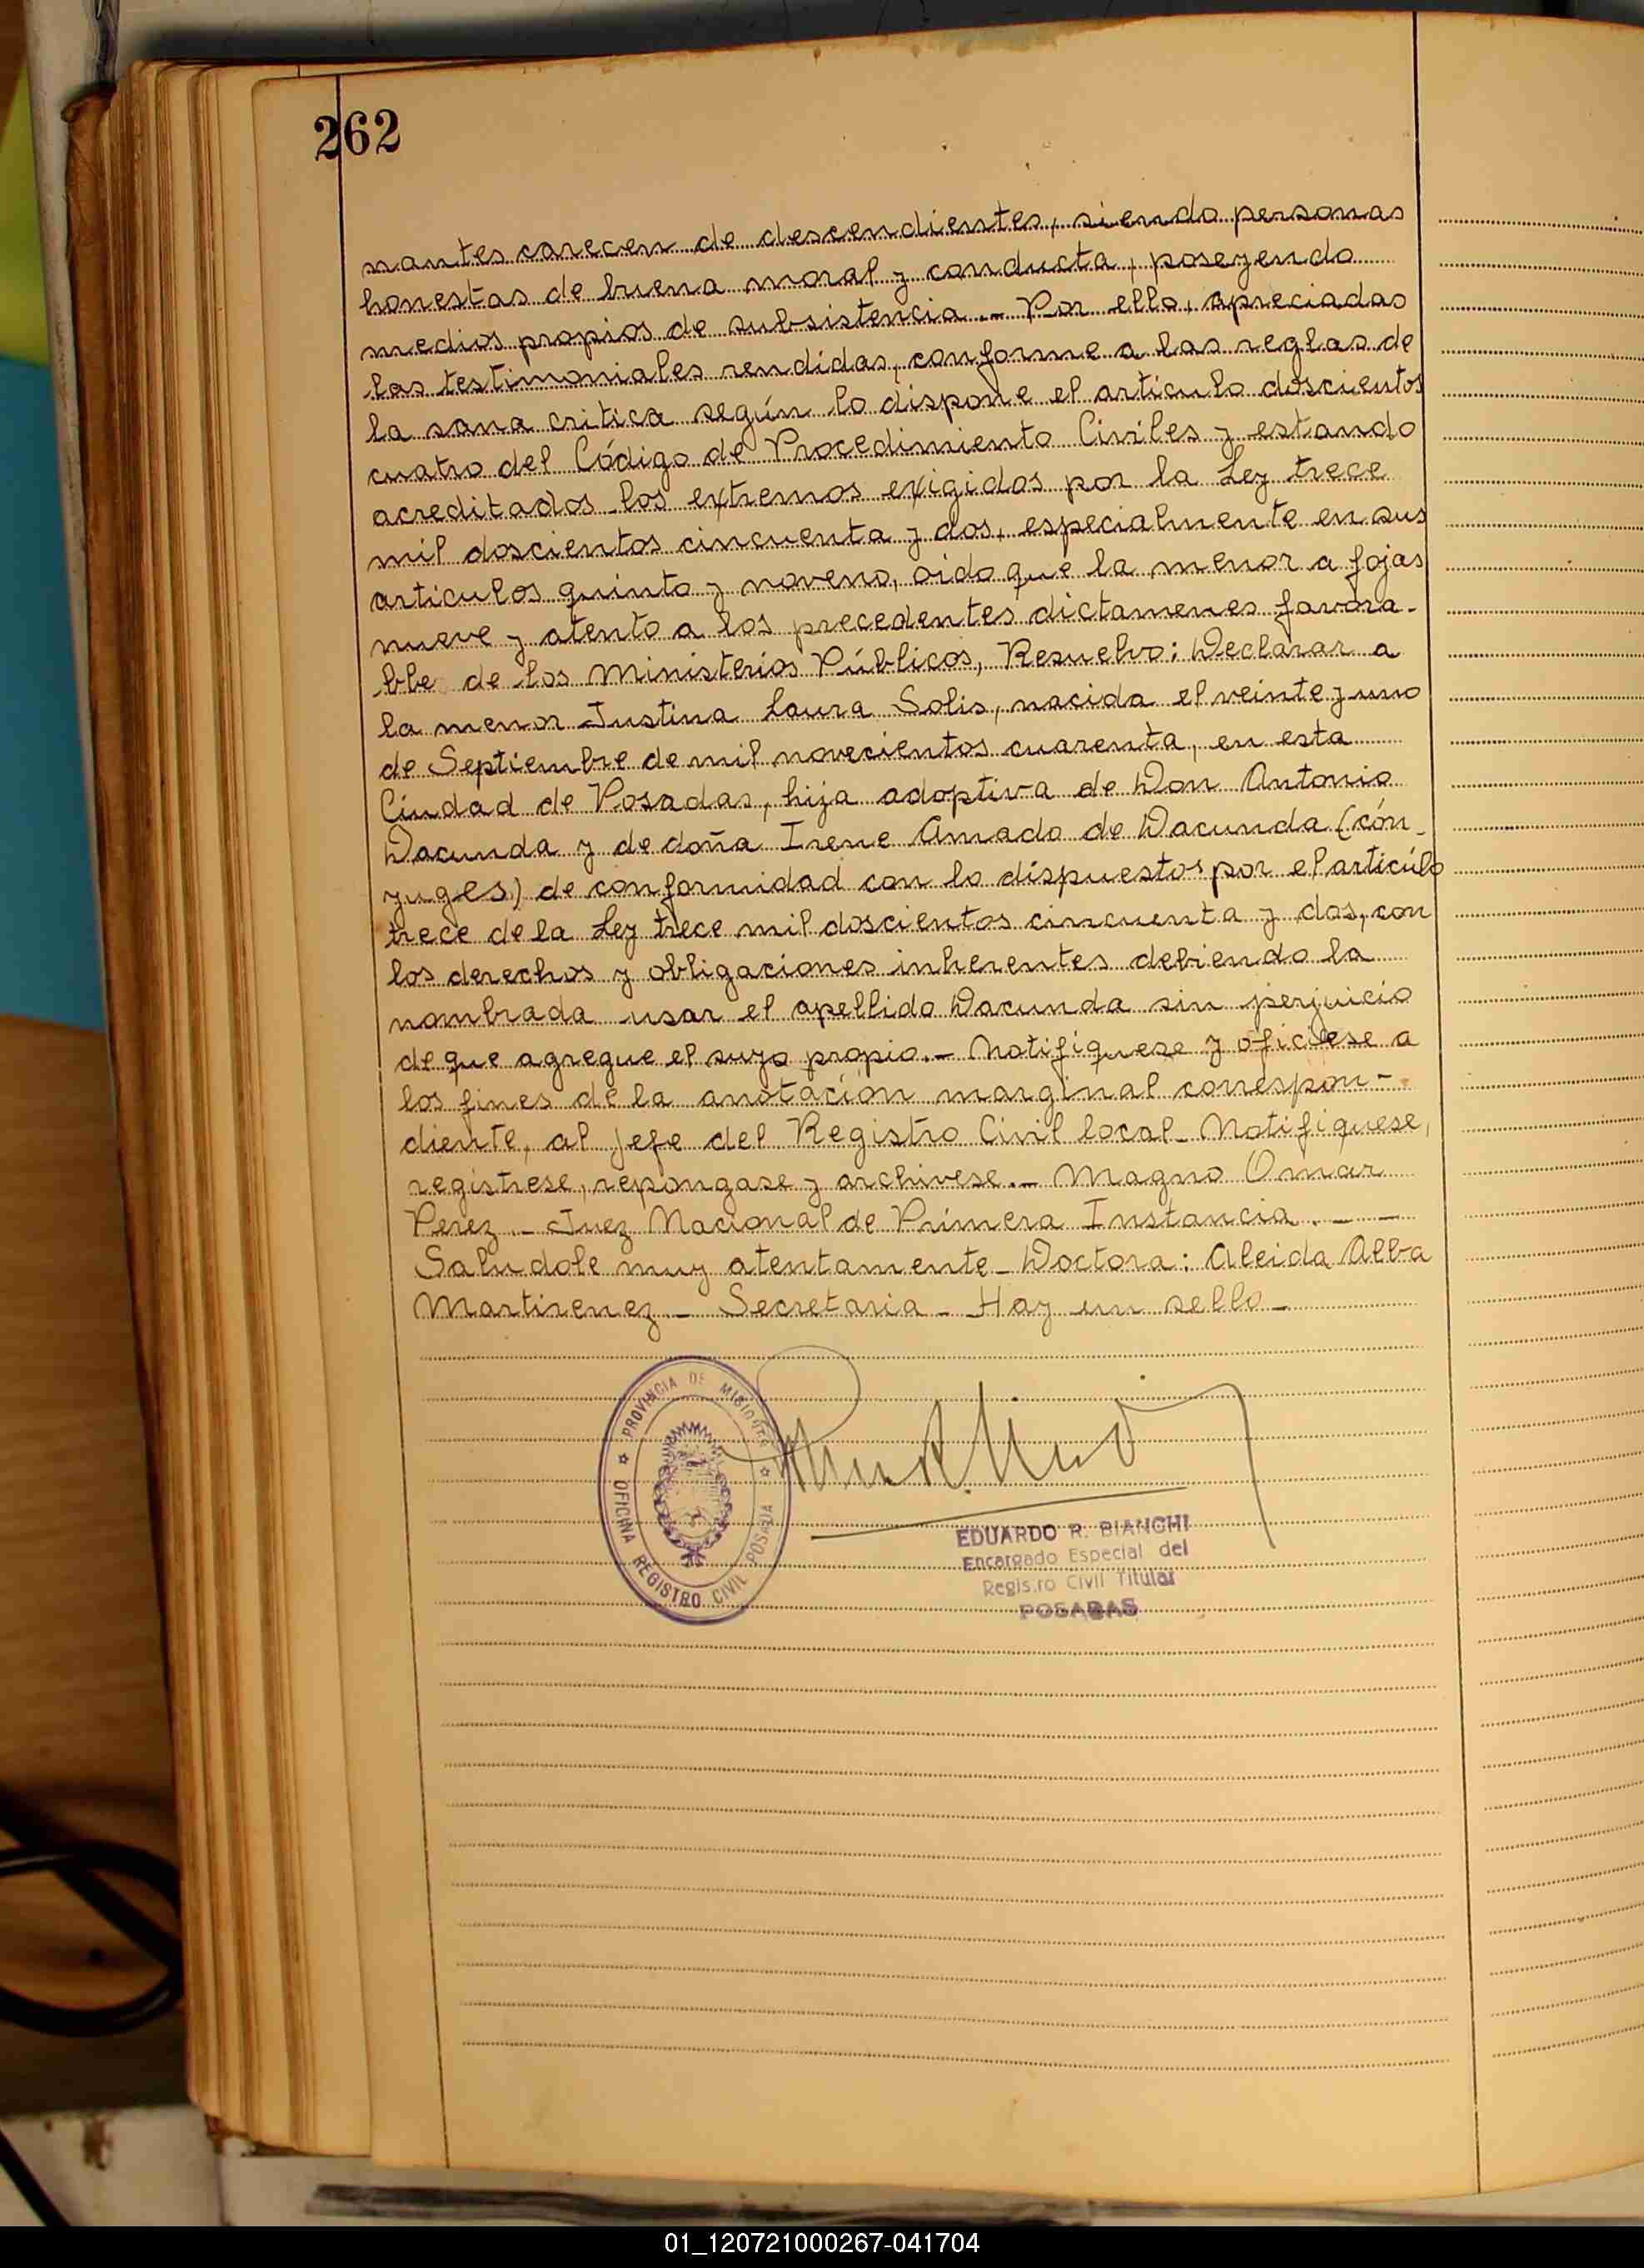 262
nantes carecen de descendientes, siendo personas
honestas de buena moral y conducta, poseyendo
medios propios de subsistencia.- Por ello, apreciadas
las testimoniales rendidas, conforme a las reglas de
la sana critica según lo dispone el artículo doscientos
cuatro del Código de Procedimiento Civiles y estando
acreditados los extremos exigidos por la Ley trece
mil doscientos cincuenta y dos, especialmente en sus
articulos quinto y noveno, oido que la menor a fojas
nueve y atento a los precedentes dictamenes favora-
ble de los Ministerios Públicos, Resuelvo: Declarar a
la menor Justina Laura Solis, nacida el veinte y uno
de Septiembre de mil novecientos cuarenta, en esta
Ciudad de Posadas, hija adoptiva de Don Antonio
Dacunda y de doña Irene Amado de Dacunda (cón-
yuges) de conformidad con lo dispuestos por el artículo
trece de la Ley trece mil doscientos cincuenta y dos, con
los derechos y obligaciones inherentes debiendo la
nombrada usar el apellido Dacunda sin perjuicio
de que agregue el suyo propio.- Notifiquese y oficiese a
los fines de la anotación marginal correspon-
diente, al jefe del Registro Civil local- Notifiquese,
registrese, repongase y archivese.- Magno Omar
Perez.- Juez Nacional de Primera Instancia.- -
Saludole muy atentamente- Doctora: Aleida Alba
Martirenez.- Secretaria- Hay un sello-
PROVINCIA DE MISIONES
OFICINA REGISTRO CIVIL POSADA
EDUARDO R. BIANCHI
Encargado Especial del
Regis.ro Civil Titular
POSADAS
01_120721000267-041704